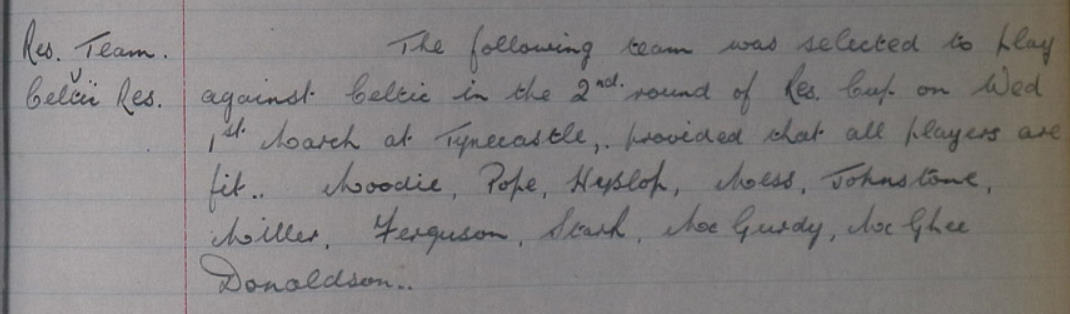 Res. Team.
v
Celtic Res.
The following team was selected to play
against Celtic in the 2nd. round of Res. Cup. on Wed
1st. March at Tynecastle,. provided that all players are
fit.. Moodie, Pope, Hyslop, Mess, Johnstone,
Miller, Ferguson, Stark, McGurdy, McGhee
Donaldson..